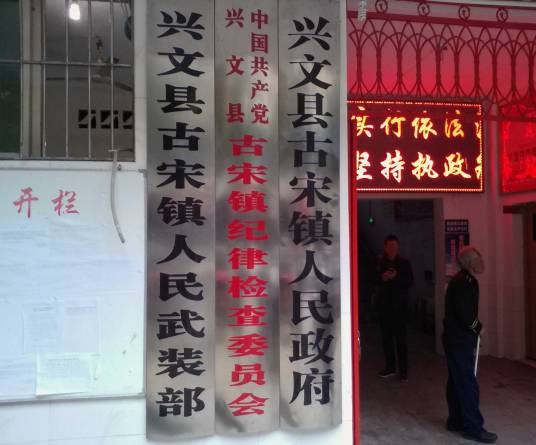 兴文县古宋镇人民政府
中国共产党
兴文县
古宋镇纪律检查委员会
兴文县古宋镇人民武装部
开栏
实行依法
坚持执政